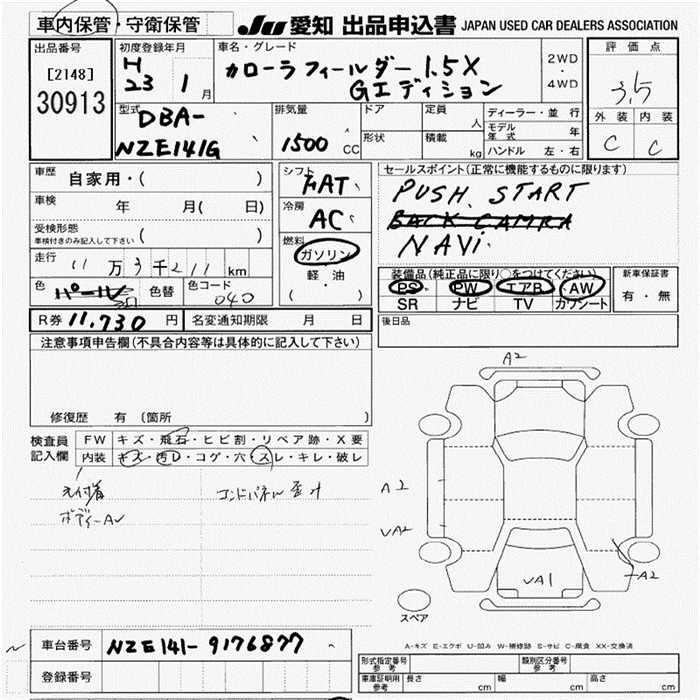 車内保管・守衛保管 JU 愛知 出品申込書 JAPAN USED CAR DEALERS ASSOCIATION
出品番号 初度登録年月 車名・グレード 評価点
[2148] H 23 1 月 カローラフィールダー 1.5X 2WD ・ 4WD
30913 Gエディション 3.5
型式 DBA- 排気量 ドア 定員 人 ディーラー・並行 外装 内装
NZE141G 1500 CC 形状 積載 kg モデル年式 年 C C
ハンドル 左・右
車歴 自家用・( ) シフト FAT セールスポイント(正常に機能するものに限ります)
車検 年 月( 日) 冷房 AC PUSH START
受検形態 ( ) BACK CAMRA
車検付きのみ記入して下さい 燃料 ガソリン NAVi
走行 11万3千211km 軽・油 装備品(純正品に限り○をつけてください) 新車保証書
色 パール 色替 色コード 040 ( ・ ) PS PW エアB AW 有・無
SR ナビ TV カワシート
R券 11,730 円 名変通知期限 月 日 後日品
注意事項申告欄(不具合内容等は具体的に記入して下さい)
修復歴 有 (箇所 )
検査員 FW キズ・飛石・ヒビ割・リペア跡・X要
記入欄 内装 キズ・汚レ・コゲ・穴・スレ・キレ・破レ
ボディーAU
A2
A2
VA2
A2
VA1
スペア
車台番号 NZE141-9176877
登録番号
A-キズ E-エクボ U-凹み W-補修跡 S-サビ C-腐食 XX-交換済
形式指定番号 参考 類別区分番号 参考
車庫証明用 参考 長さ cm 幅 cm 高さ cm